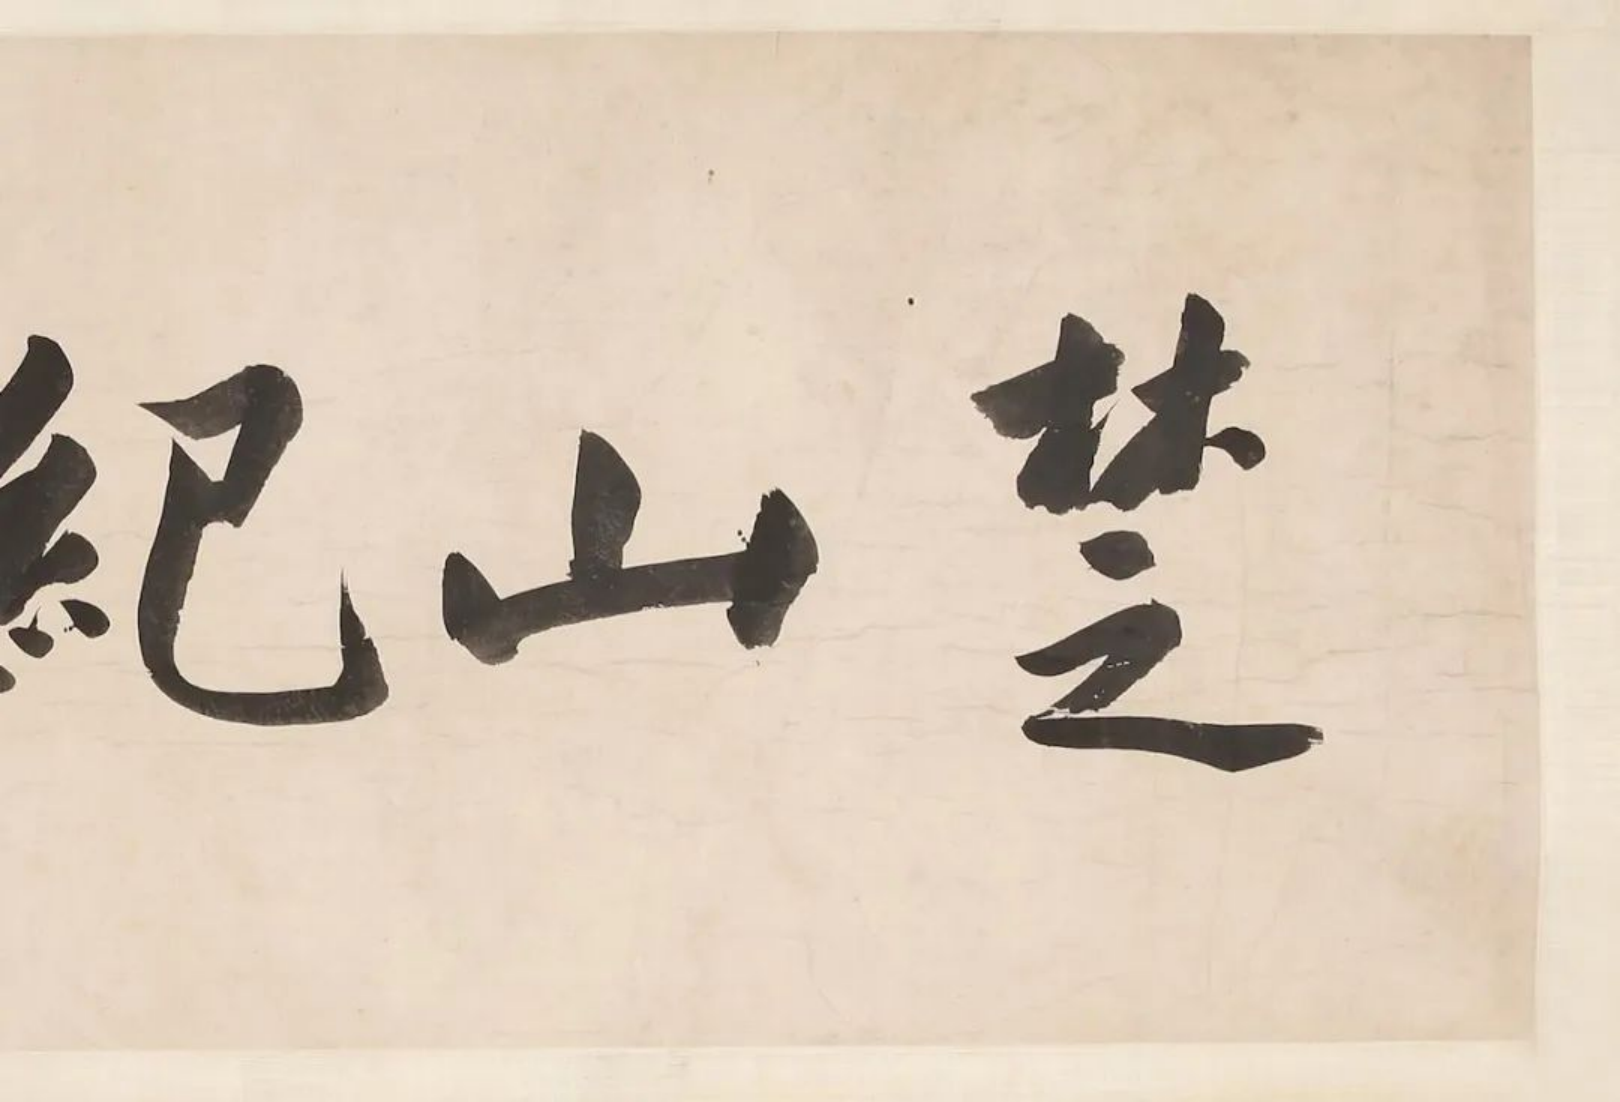 楚山紀